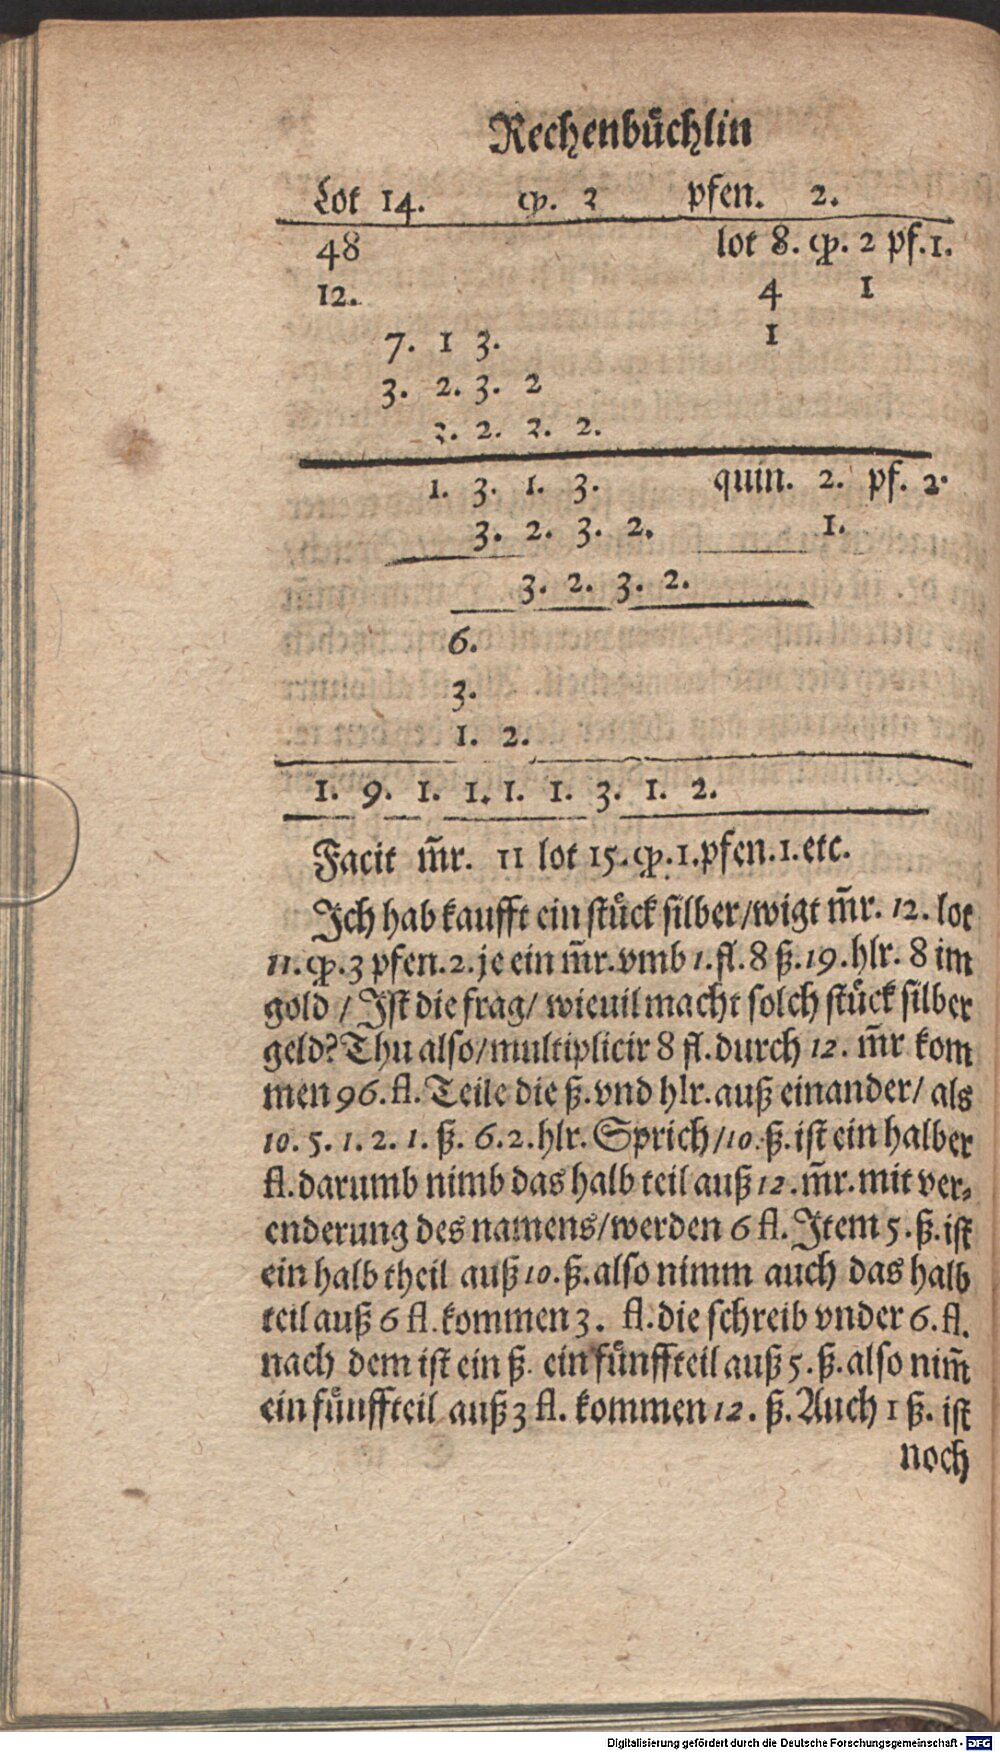 Rechenbůchlin
Lot 14. qͥp. 3 pfen. 2.
48 lot 8. qͥp. 2 pf. 1.
12. 4 1
7. 1 3. 1
3. 2. 3. 2
2. 2. 2.
1. 3. 1. 3. quin. 2. pf. 2.
3. 2. 3. 2. 1.
3. 2. 3. 2.
6.
3.
1. 2.
1. 9. 1. 1. 1. 1. 3. 1. 2.
Facit m̃r. 11 lot 15. qp. 1. pfen. 1. etc.
Ich hab kaufft ein stůck silber/wigt m̃r. 12. lot
11. qp. 3 pfen. 2. je ein m̃r. vmb 1. fl. 8 ß. 19. hlr. 8 im
gold / Ist die frag/ wieuil macht solch stůck silber
geld? Thu also/multiplicir 8 fl. durch 12. m̃r kom
men 96. fl. Teile die ß. vnd hlr. auß einander/ als
10. 5. 1. 2. 1. ß. 6. 2. hlr. Sprich/10. ß. ist ein halber
fl. darumb nimb das halb teil auß 12. m̃r. mit ver-
enderung des namens/werden 6 fl. Item 5. ß. ist
ein halb theil auß 10. ß. also nimm auch das halb
teil auß 6 fl. kommen 3. fl. die schreib vnder 6. fl.
nach dem ist ein ß. ein fůnffteil auß 5. ß. also nim̃
ein fůnffteil auß 3 fl. kommen 12. ß. Auch 1 ß. ist
noch
Digitalisierung gefördert durch die Deutsche Forschungsgemeinschaft - DFG